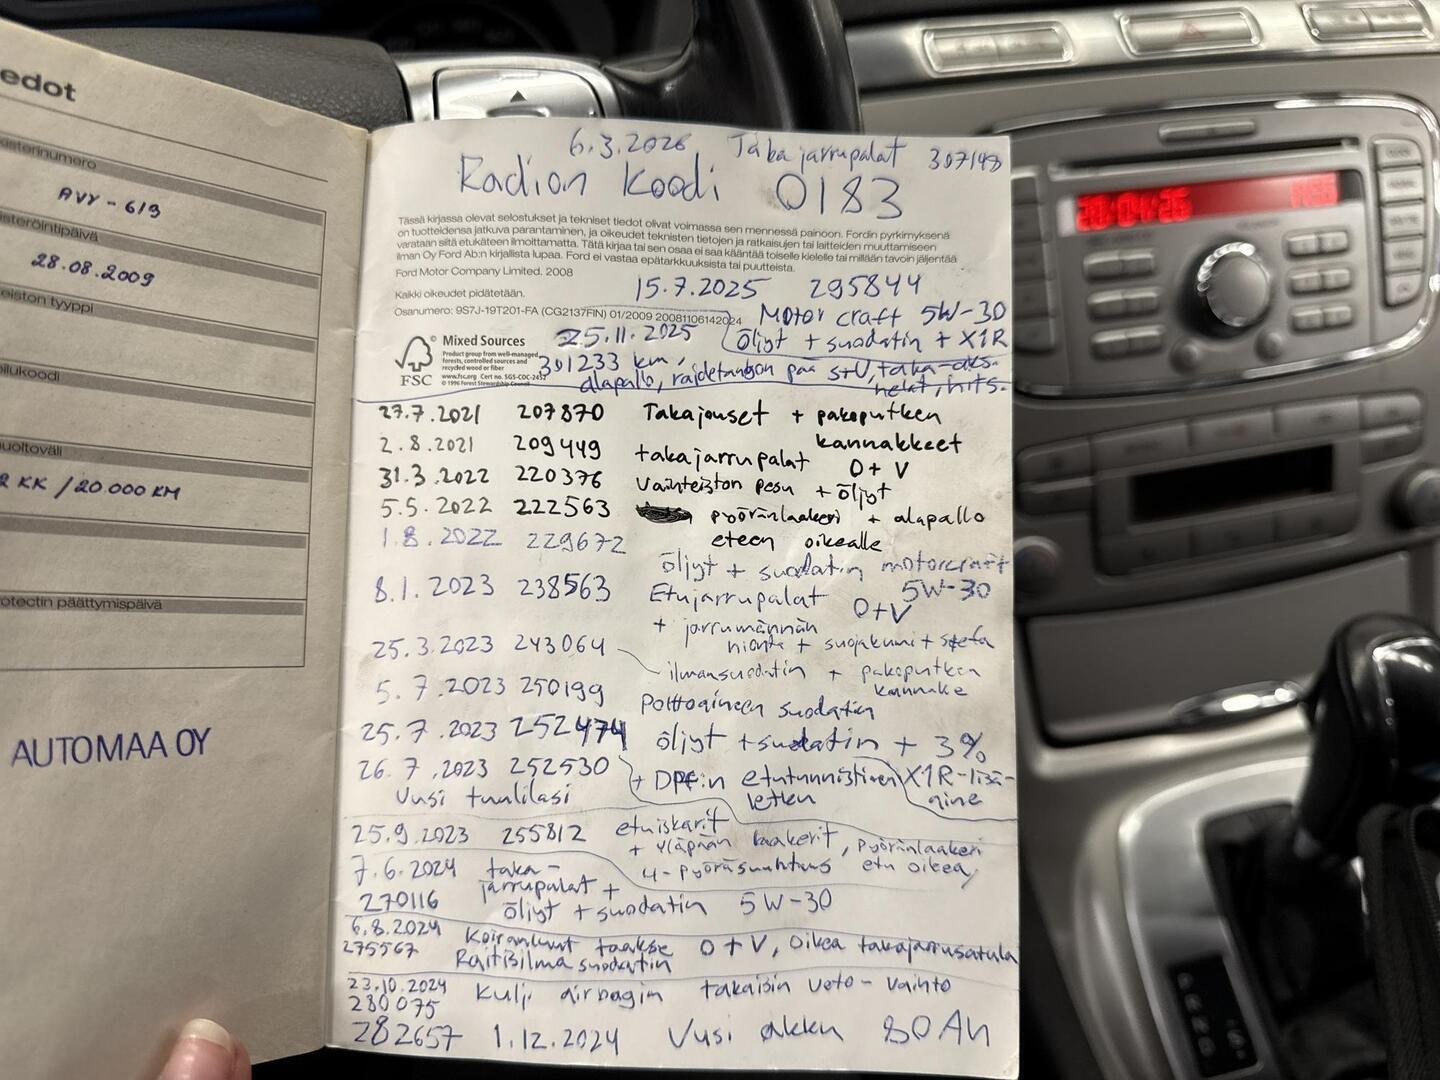 edot
isterinumero
AVY-619
isteröintipäivä
28.08.2009
eiston tyyppi
ilukoodi
uoltoväli
2 KK / 20.000 KM
otectin päättymispäivä
AUTOMAA OY
6.3.2026 Takajarrupalat 307198
Radion Koodi 0183
Tässä kirjassa olevat selostukset ja tekniset tiedot olivat voimassa sen mennessä painoon. Fordin pyrkimyksenä
on tuotteidensa jatkuva parantaminen, ja oikeudet teknisten tietojen ja ratkaisujen tai laitteiden muuttamiseen
varataan siitä etukäteen ilmoittamatta. Tätä kirjaa tai sen osaa ei saa kääntää toiselle kielelle tai millään tavoin jäljentää
ilman Oy Ford Ab:n kirjallista lupaa. Ford ei vastaa epätarkkuuksista tai puutteista.
Ford Motor Company Limited, 2008
Kaikki oikeudet pidätetään.
15.7.2025 295844
Osanumero: 9S7J-19T201-FA (CG2137FIN) 01/2009 20081106142024
Motorcraft 5W-30
öljyt + suodatin + X1R
FSC
Mixed Sources
Product group from well-managed
forests, controlled sources and
recycled wood or fiber
www.fsc.org Cert no. SGS-COC-2452
© 1996 Forest Stewardship Council
25.11.2025
301233 km,
alapallo, raidetangon pää s+U, taka-aks.
helat, hits.
27.7.2021 207870 Takajouset + pakoputken
kannakkeet
2.8.2021 209449 takajarrupalat O+V
31.3.2022 220376 Vaihteiston pesu + öljyt
5.5.2022 222563 pyöränlaakeri + alapallo
eteen oikealle
1.8.2022 229672 öljyt + suodatin motorcraft
5W-30
8.1.2023 238563 Etujarrupalat O+V
+ jarrumännän
hionta + suojakumi +
25.3.2023 243064 ilmansuodatin + pakoputken
kannake
5.7.2023 250199 Polttoaineen suodatin
25.7.2023 252474 öljyt + suodatin + 3%
X1R-lisä-
aine
26.7.2023 252530 + DPF:n etutunnistimen
letku
Uusi tuulilasi
25.9.2023 255812 etuiskarit
+ yläpään laakerit, pyöränlaakeri
etu oikea,
4-pyöräsuuntaus
7.6.2024 taka-
jarrupalat +
270116 öljyt + suodatin 5W-30
6.8.2024 Koiranluut taakse O+V, oikea takajarrusatula
275567 Raitisilma suodatin
23.10.2024
280075 Kulj. airbagin takaisin veto-vaihto
282657 1.12.2024 Uusi akku 80 Ah